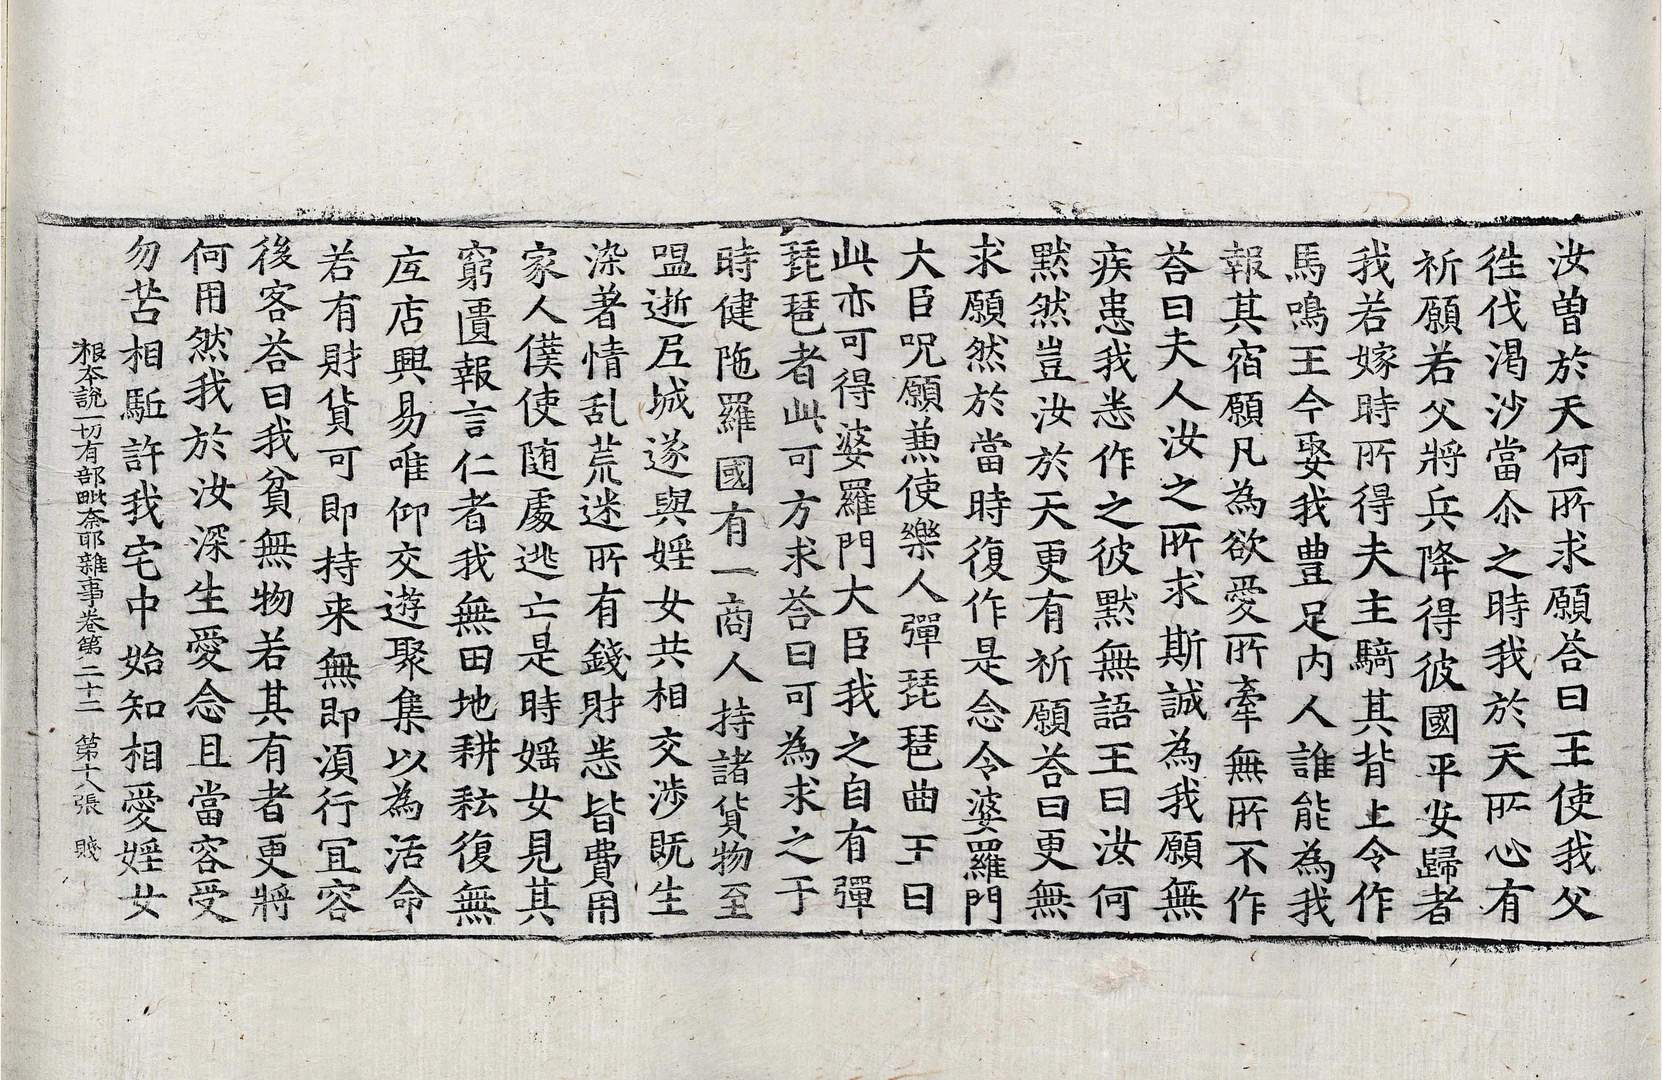 汝曽於天何所求願荅曰王使我父
徃伐渇沙當尒之時我於天所心有
祈願若父將兵降得彼國平安歸者
我若嫁時所得夫主騎其背上令作
馬鳴王今娶我豊足内人誰能為我
報其宿願凡為欲愛所牽無所不作
荅曰夫人汝之所求斯誠為我願無
疾患我悉作之彼黙無語王曰汝何
黙然豈汝於天更有祈願荅曰更無
求願然於當時復作是念令婆羅門
大臣呪願兼使樂人彈琵琶曲王曰
此亦可得婆羅門大臣我之自有彈
琵琶者此可方求荅曰可為求之于
時健陁羅國有一商人持諸貨物至
呾逝尸城遂與婬女共相交渉既生
染著情乱荒迷所有錢財悉皆費用
家人僕使随處逃亡是時婬女見其
窮匱報言仁者我無田地耕耘復無
店興易唯仰交遊聚集以為活命
若有財貨可即持来無即湏行冝容
後客荅曰我貧無物若其有者更將
何用然我於汝深生愛念且當容受
勿苦相駈許我宅中始知相愛婬女
根本說一切有部毗奈耶雜事卷第二十二　第十八張　賤